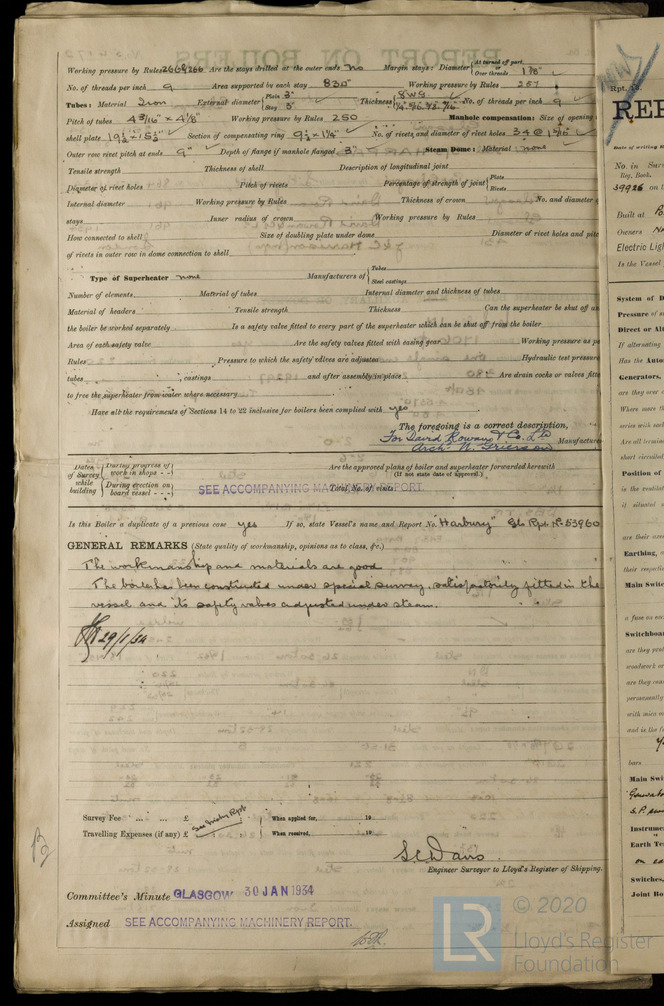 Working pressure by Rules 266 & 266 Are the stays drilled at the outer ends No Margin stays: Diameter At turned off part, or Over threads 1 7/8"
No. of threads per inch 9 Area supported by each stay 83□" Working pressure by Rules 257
Tubes: Material Iron External diameter Plain 3" Stay 3" Thickness 8 WG No. of threads per inch 9
Pitch of tubes 4 3/16" x 4 1/8" Working pressure by Rules 250 Manhole compensation: Size of opening
shell plate 19 1/2 x 15 1/2" Section of compensating ring 9 1/2 x 1 1/4" No. of rivets and diameter of rivet holes 34 @
Outer row rivet pitch at ends 9" Depth of flange if manhole flanged 3" Steam Dome: Material none
Tensile strength Thickness of shell Description of longitudinal joint
Diameter of rivet holes Pitch of rivets Percentage of strength of joint Plate Rivets
Internal diameter Working pressure by Rules Thickness of crown No. and diameter
stays Inner radius of crown Working pressure by Rules
How connected to shell Size of doubling plate under dome Diameter of rivet holes and
of rivets in outer row in dome connection to shell
Type of Superheater none Manufacturers of Tubes Steel castings
Number of elements Material of tubes Internal diameter and thickness of tubes
Material of headers Tensile strength Thickness Can the superheater be shut off
the boiler be worked separately Is a safety valve fitted to every part of the superheater which can be shut off from the boiler
Area of each safety valve Are the safety valves fitted with easing gear Working pressure as
Rules Pressure to which the safety valves are adjusted Hydraulic test pressure
tubes castings and after assembly in place Are drain cocks or valves
to free the superheater from water where necessary
Have all the requirements of Sections 14 to 22 inclusive for boilers been complied with yes
The foregoing is a correct description,
For David Rowan & Co. Ld
Arch. N. Grierson Manufacturer
Dates of Survey while building During progress of work in shops - - During erection on board vessel - - - SEE ACCOMPANYING MACHINERY REPORT.
Are the approved plans of boiler and superheater forwarded herewith (If not state date of approval.)
Total No. of visits
Is this Boiler a duplicate of a previous case yes If so, state Vessel's name and Report No. "Harbury" Gls Rpt. No. 53960
GENERAL REMARKS (State quality of workmanship, opinions as to class, &c.)
The workmanship and materials are good
The boiler has been constructed under special survey, satisfactorily fitted in the
vessel and its safety valves adjusted under steam.
29/1/34
Survey Fee ... ... £ See Machy Rpt When applied for, 19
Travelling Expenses (if any) £ When received, 19
S C Davis
Engineer Surveyor to Lloyd's Register of Shipping.
Committee's Minute GLASGOW 30 JAN 1934
Assigned SEE ACCOMPANYING MACHINERY REPORT.
LR © 2020
Lloyd's Register
Foundation
Rpt. 13.
REP
Date of writing
No. in
Reg. Book.
39926 on
Built at
Owners
Electric Ligh
Is the Vessel
System of
Pressure of
Direct or
If alternating
Has the Auto
Generators,
are they over
Where more
series with
Are all termin
short circuited
Position of
is the ventilat
if situated
are their
Earthing,
their respecti
Main Switc
a fuse on
Switchboar
are they
woodwork or
are they
permanently
with mica
and is the
bars
Main Swi
Generator
Instrumen
Earth Te
Switches,
Joint Bo